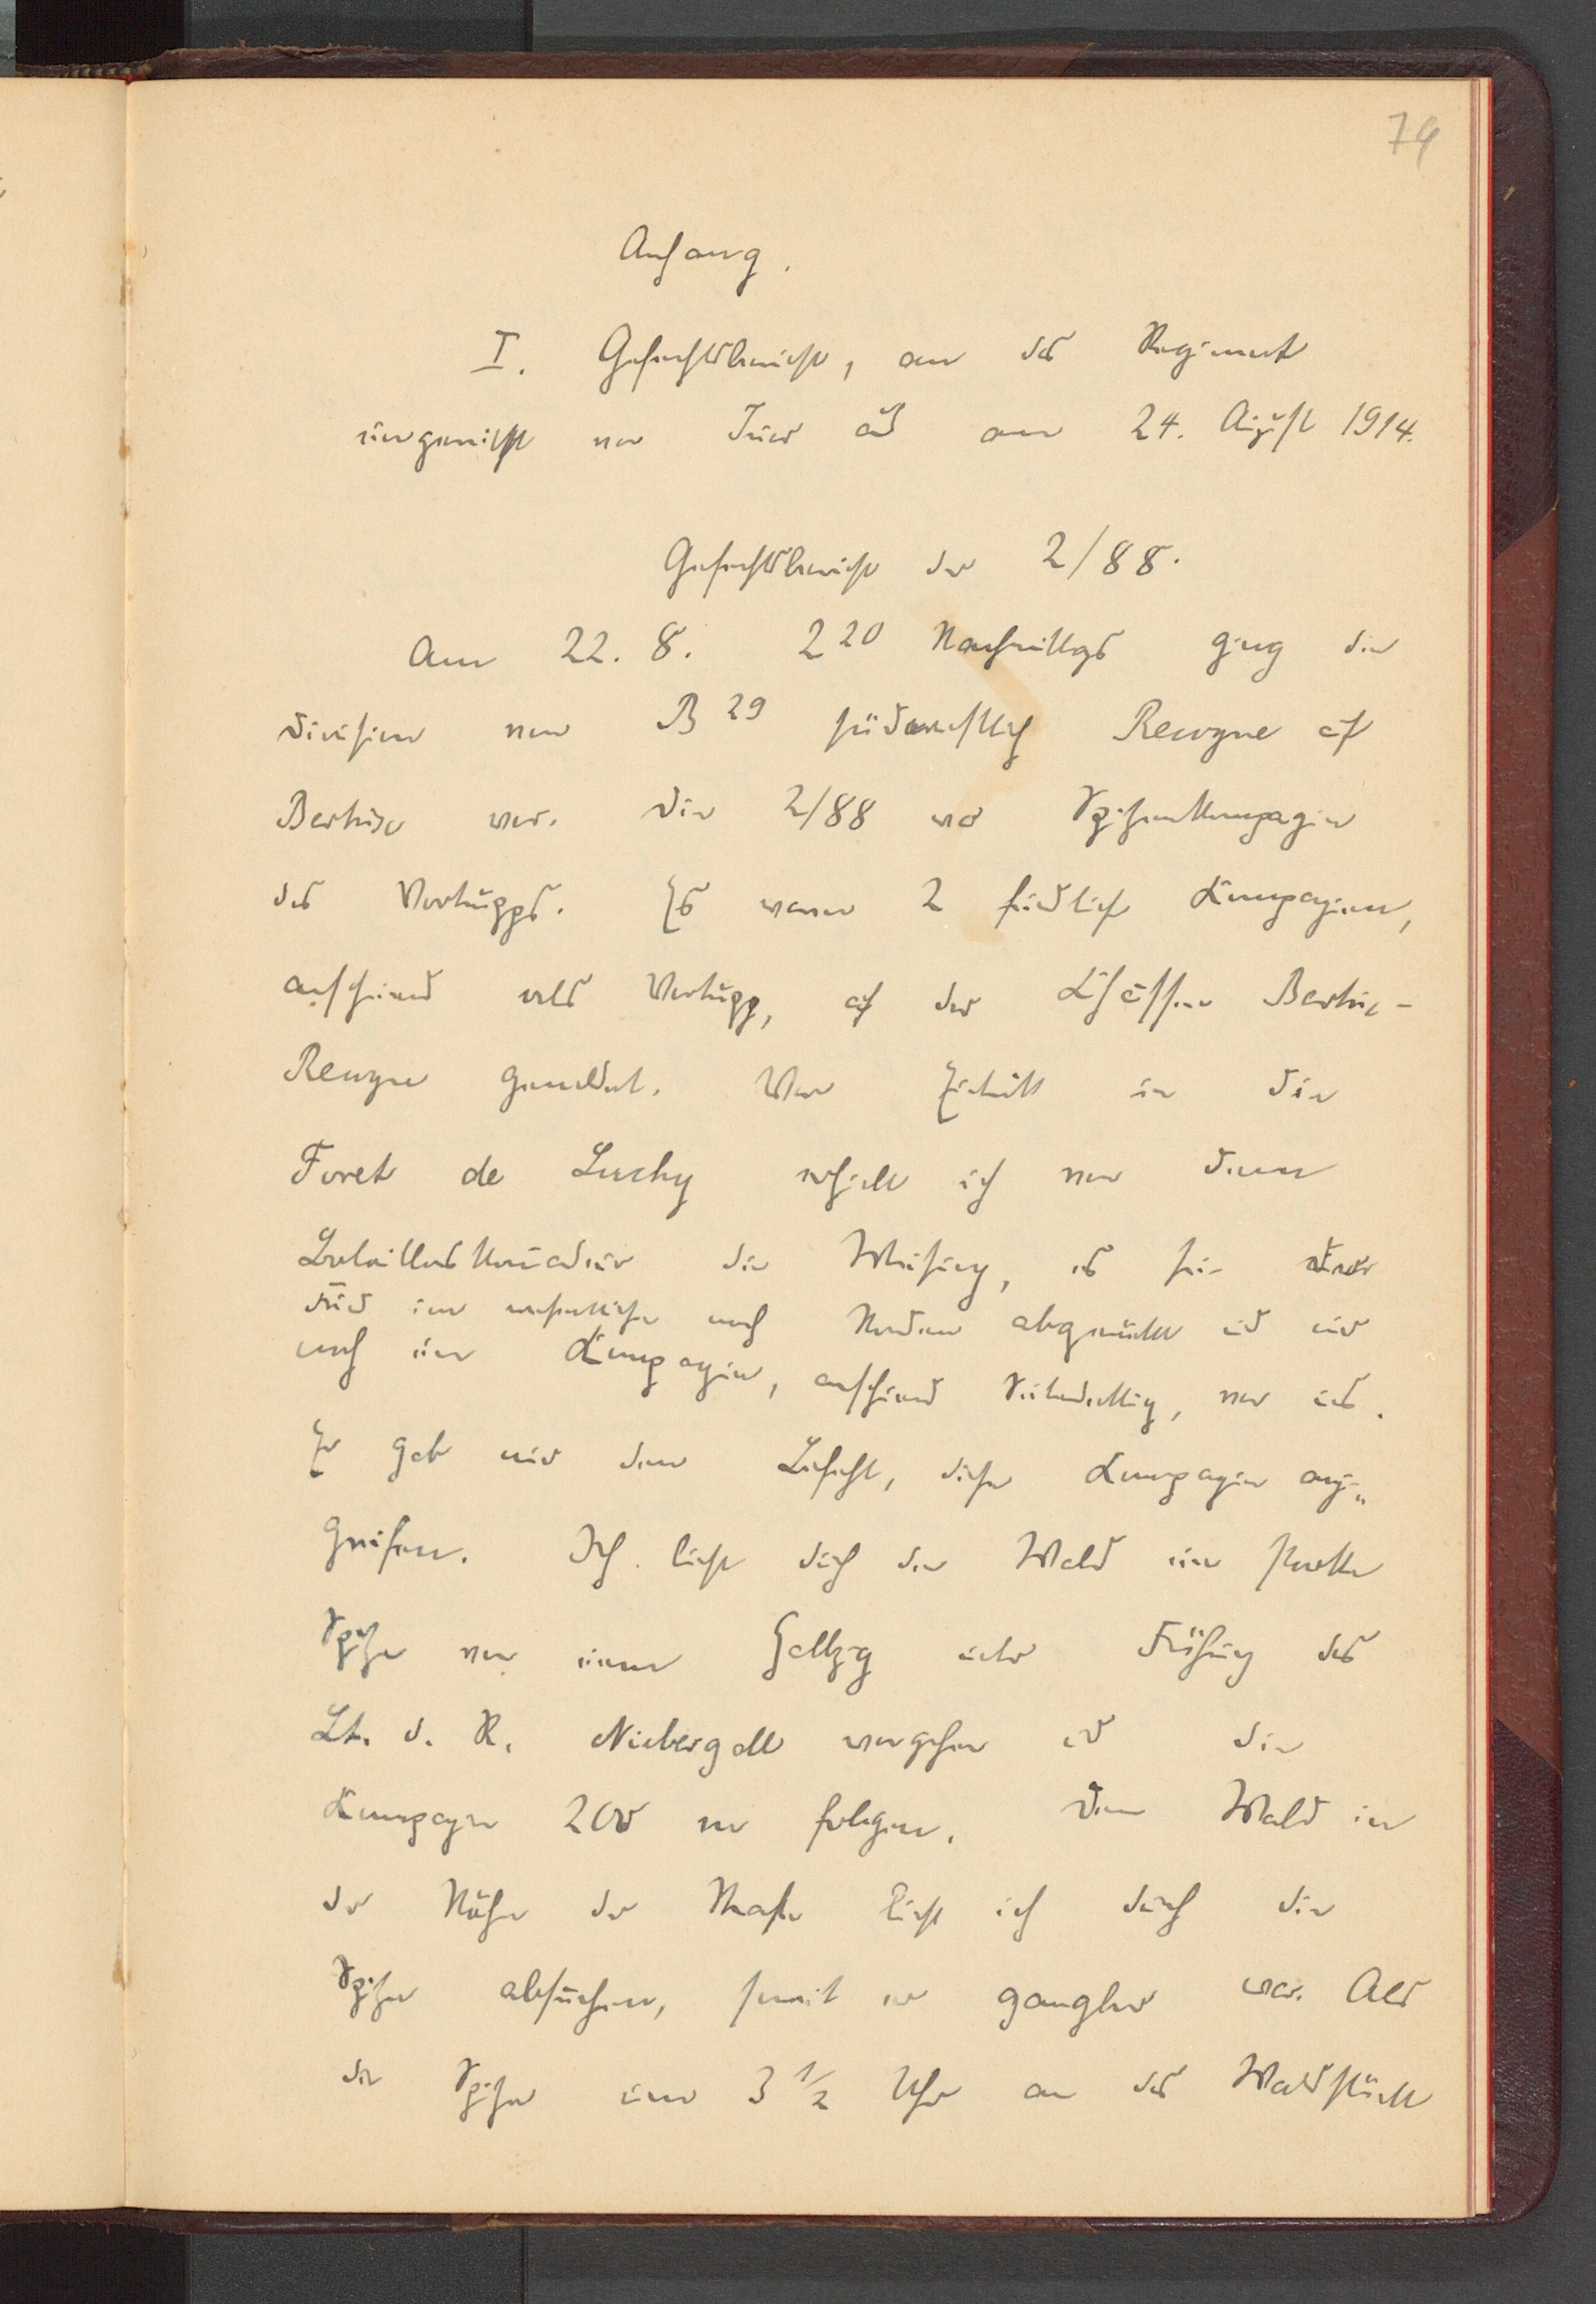 74
Anhang.
I. Gefechtsbericht, an das Regiment
eingereicht von Suis aus am 24. August 1914.
Gefechtsbericht der 2/88.
Am 22. 8. 2 20 Nachmittags ging die
Division von B 29 südwestlich Recogne auf
Bertrix vor. Die 2/88 war Spitzenkompagnie
des Vortrupps. Es waren 2 feindliche Kompagnien,
anscheinend als Vortrupp, auf der Chaussee Bertrix-
Recogne gemeldet. Vor Eintritt in die
Foret de Luchy erhielt ich von dem
Bataillonskommandeur die Weisung, es sei der
Feind im wesentlichen nach Norden abgerückt und nur
noch eine Kompagnie, anscheinend, vor uns.
Er gab mir den Befehl, diese Kompagnie anzu-
greifen. Ich ließ durch den Wald eine starke
Spitze von einem Halbzug unter Führung des
Lt. d. R. Niebergall vorgehen und die
Kompagnie 200 m folgen. Den Wald in
der Nähe der Straße ließ ich durch die
Spitze absuchen, soweit er gangbar war. Als
die Spitze um 3 1/2 Uhr an das Waldstück